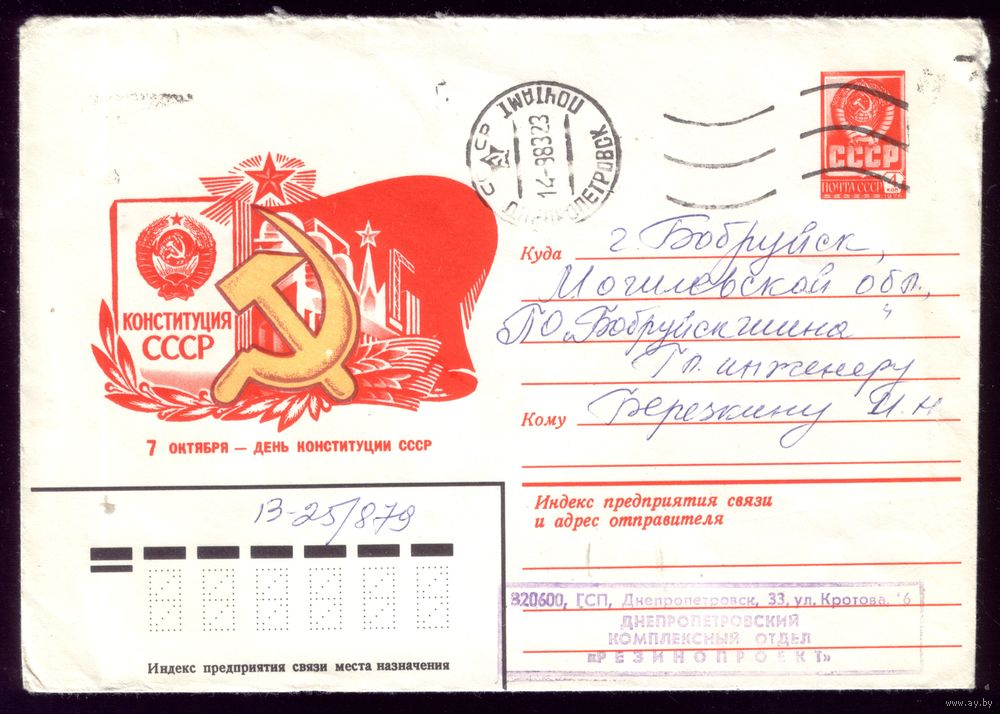 ДНЕПРОПЕТРОВСК ПОЧТАМТ
СССР
14-98323
СССР
ПОЧТА СССР
4
КОП
КОНСТИТУЦИЯ
СССР
7 ОКТЯБРЯ — ДЕНЬ КОНСТИТУЦИИ СССР
Куда г. Бобруйск,
Могилевской обл.,
ПО „Бобруйскшина"
Гл. инженеру
Кому Березкину И. Н
Индекс предприятия связи
и адрес отправителя
320600, ГСП, Днепропетровск, 33, ул. Кротова,
ДНЕПРОПЕТРОВСКИЙ
КОМПЛЕКСНЫЙ ОТДЕЛ
«РЕЗИНОПРОЕКТ»
В-25/879
Индекс предприятия связи места назначения
www.ay.by